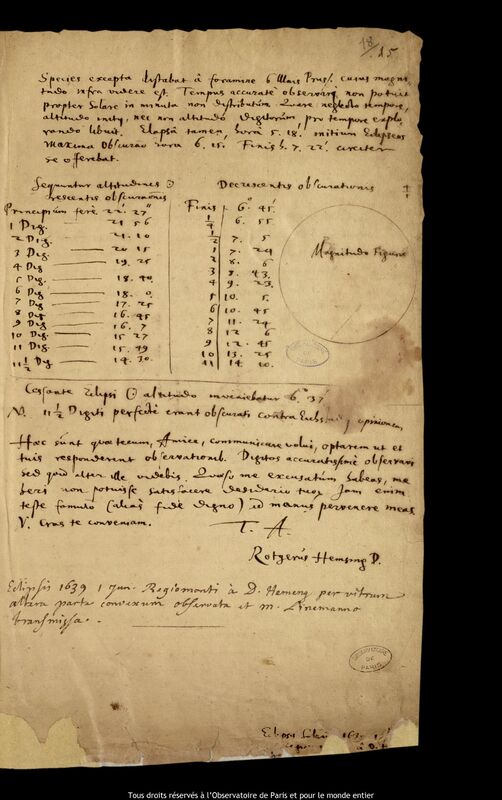 18
15
Species excepta distabat à foramine 6 Ulnis Pruss. cuius magni
tudo infra videre est. Tempus accuratè observari non potuit
propter Solare in minuta non distributum. Quare neglecto tempore,
altitudo nec altitudo digitorum pro tempore explo
rando libuit. Elapsâ tamen, horâ 5. 18. initium Eclipseos
maxima Obscuratio hora 6. 15. Finis h. 7. 22. circiter
se offerebat.
Sequuntur altitudines ☉
crescentis obscurationis
Decrescentis obscurationis
Principium ferè 22. 27
1 Dig. 21 56
2 Dig. 21. 10
3 Dig. 20 15
4 Dig 19. 25
5 Dig. 18. 40.
6 Dig. 18. 0.
7 Dig 17. 25
8 Dig 16. 45
9 Dig 16. 7
10 Dig. 15 27
11 Dig. 15. 49
11 1/2 Dig 14. 30.
Finis 6. 45
1/4 6. 55
1/2 7. 5
1 7. 24
2 8. 6
3 8. 43.
4 9. 23.
5 10. 5.
6 10. 45
7 11. 24
8 12 6
9 12. 45
10 13. 25
11 14. 10
Magnitudo Figurae
OBSERVATOIRE DE PARIS
Cessante Eclipsi ☉ altitudo inveniebatur 6. 37
N. 11 1/2 Digiti perfectè erant obscurati contra opinionem,
Haec sunt quae tecum, Amice, communicare volui, optarem ut et
tuis responderent observationib. Digitos accuratissimè observavi
sed quid alter ille videbis. Quaeso me excusatum habeas, me
heri non potuisse satisfacere desiderio tuo, jam enim
teste famulo (aliàs fide digno) ad manus pervenere meas
V. Cras te conveniam.
T. A.
Rotgerus Hemsing D.
Eclipsis 1639 1 Jun. Regiomonti à D. Hemsing per vitrum
altera parte convexum observata et m. Linemanno
transmissa.
OBSERVATOIRE DE PARIS
Tous droits réservés à l'Observatoire de Paris et pour le monde entier